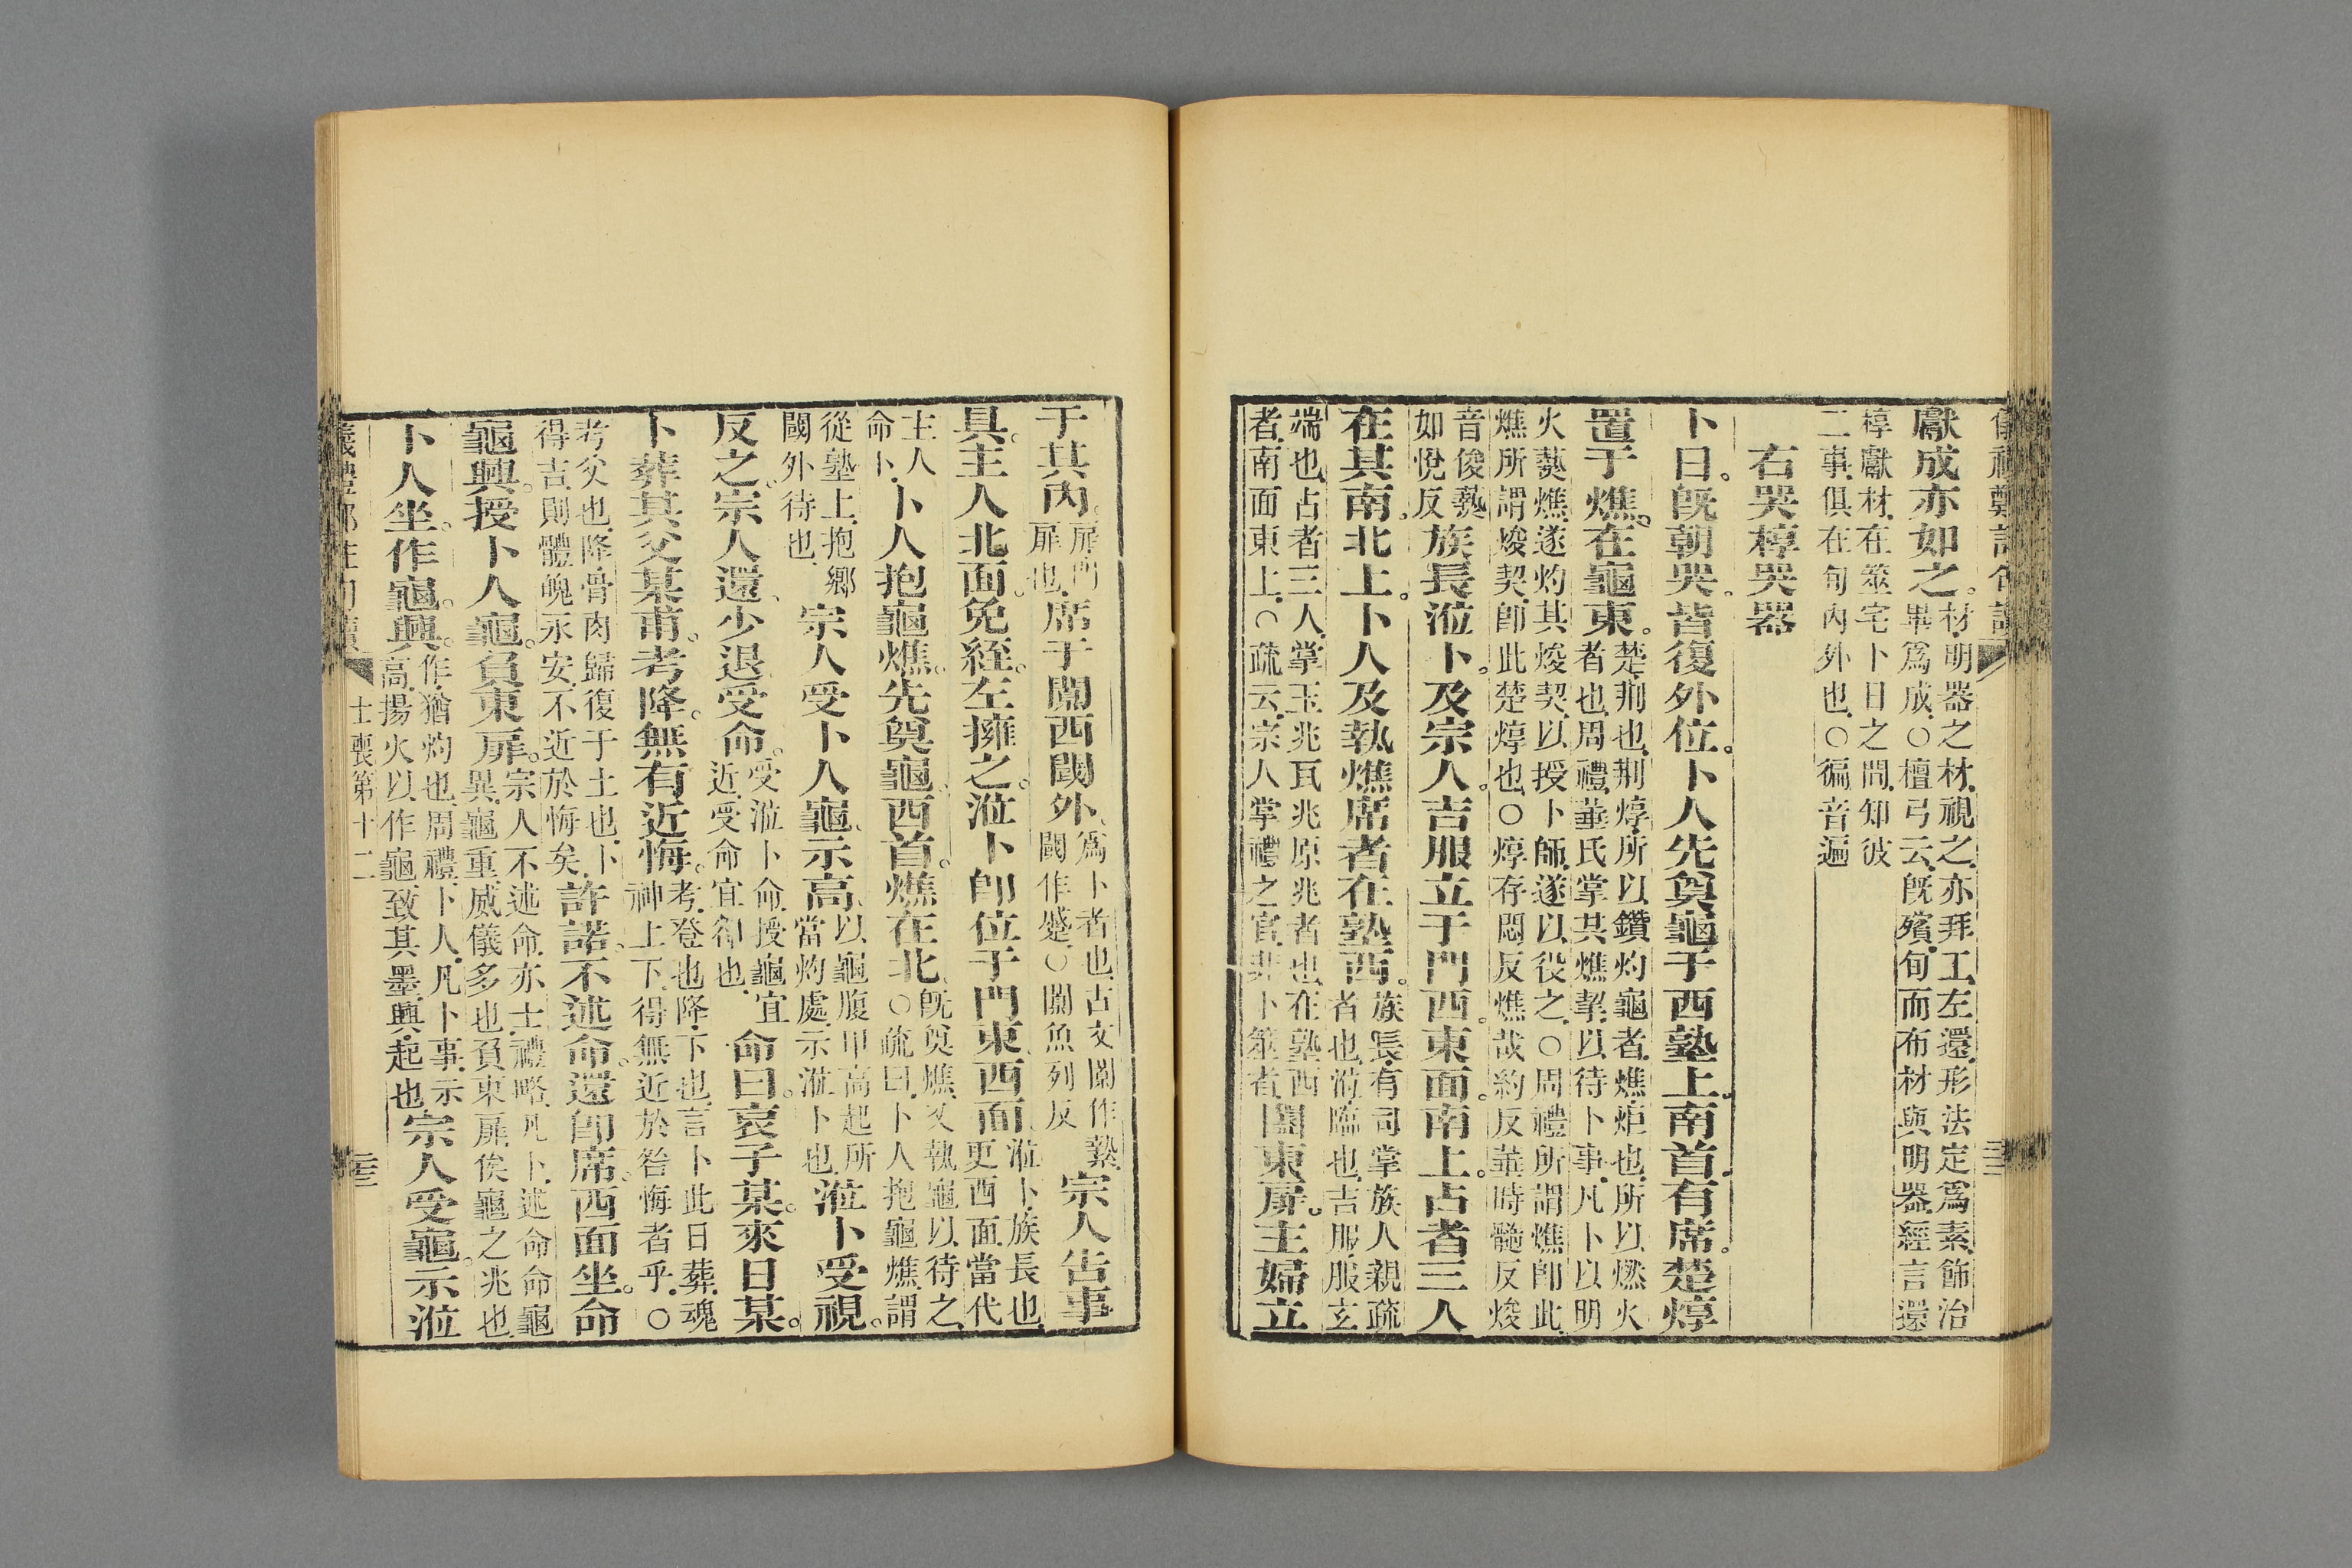 獻成亦如之。材明器之材視之亦拜工左還形法定爲素飾治
畢爲成○檀弓云既殯旬而布材與明器經言還
椁獻材在筮宅卜日之間知彼
二事俱在旬內外也○徧音遍
右哭椁哭器
卜日。既朝哭。皆復外位。卜人先奠龜于西塾上南首有席。楚焞
置于燋。在龜東。楚荆也荆焞所以鑽灼龜者燋炬也所以燃火
者也周禮菙氏掌共燋挈以待卜事凡卜以明
火爇燋遂灼其焌契以授卜師遂以役之○周禮所謂燋卽此
燋所謂焌契卽此楚焞也○焞存悶反燋哉約反菙時髓反焌
音俊爇
如悅反族長涖卜。及宗人。吉服立于門西。東面南上。占者三人
在其南。北上。卜人及執燋席者在塾西。族長有司掌族人親疏
者也涖臨也吉服服玄
端也占者三人掌玉兆瓦兆原兆者也在塾西
者南面東上○疏云宗人掌禮之官非卜筮者闔東扉。主婦立
于其內。扉門
扉也席于闑西閾外。爲卜者也古文闑作槷
閾作蹙○闑魚列反宗人告事
具。主人北面。免絰。左擁之。涖卜卽位于門東。西面。涖卜族長也
更西面當代
主人
命卜卜人抱龜燋。先奠龜。西首。燋在北。既奠燋又執龜以待之
○疏曰卜人抱龜燋謂
從塾上抱鄉
閾外待也宗人受卜人龜。示高。以龜腹甲高起所
當灼處示涖卜也涖卜受視。
反之。宗人還。少退。受命。受涖卜命授龜宜
近受命宜卻也命曰。哀子某。來日某。
卜葬其父某甫。考降。無有近悔。考登也降下也言卜此日葬魂
神上下得無近於咎悔者乎○
考父也降骨肉歸復于土也卜
得吉則體魄永安不近於悔矣許諾。不述命。還卽席。西面坐。命
龜。興。授卜人龜。負東扉。宗人不述命亦士禮略凡卜述命命龜
異龜重威儀多也負東扉俟龜之兆也
卜人坐。作龜。興。作猶灼也周禮卜人凡卜事示
高揚火以作龜致其墨興起也宗人受龜。示涖
士喪第十二